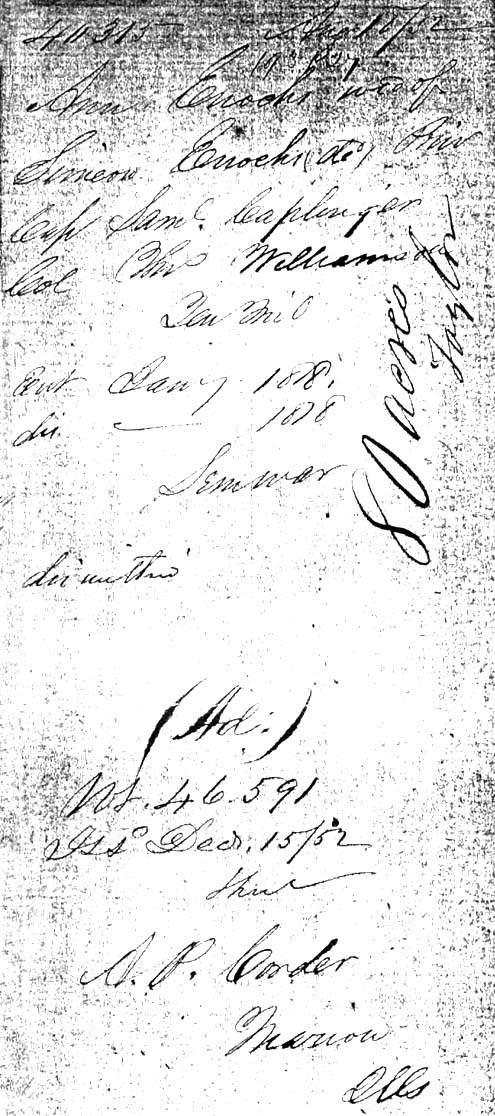 40315
Ann Enochs wid of
Simeon Enochs (dec) Priv
Cap Saml. Caplinger
Col Williamson
Ten Mil
Ent Jany 1818.
dis 1818
Sem war
80 acres
(Ad.)
Wt. 46.591
Issd Decr. 15/52
A. P. Corder
Marion
Ills